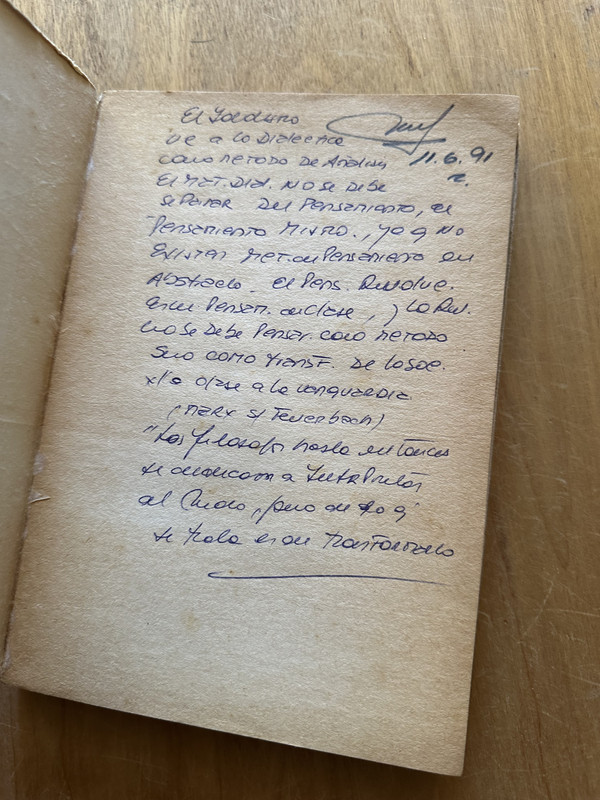 El
11.6.91
ve a la Dialectica
como metodo De Analisis
El Met. Dial. NO se Debe
separar Del Pensamiento, el
Pensamiento Mismo., ya q NO
Existen Met. de Pensamiento en
Abstracto. el Pens.
Pensam. de clase, y la Dial.
no se Debe Pensar como metodo
Sino como Transf. De la Soc.
x la clase a la vanguardia
(Marx s/ Feuerbach)
"Los filosofos hasta entonces
se dedicaron a Interpretar
al Mundo, pero de lo q
se trata es de transformarlo